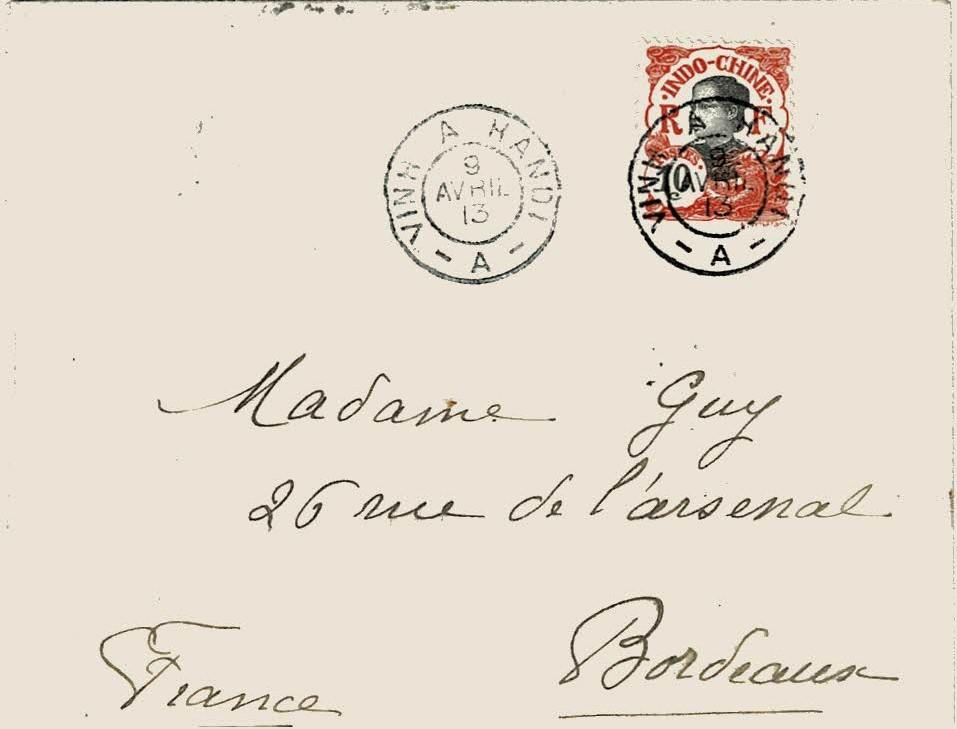 INDO-CHINE
R F
10
VINH A HANOI
9
AVRIL
13
A
VINH A HANOI
9
AVRIL
13
A
Madame Guy
26 rue de l'arsenal
Bordeaux
France